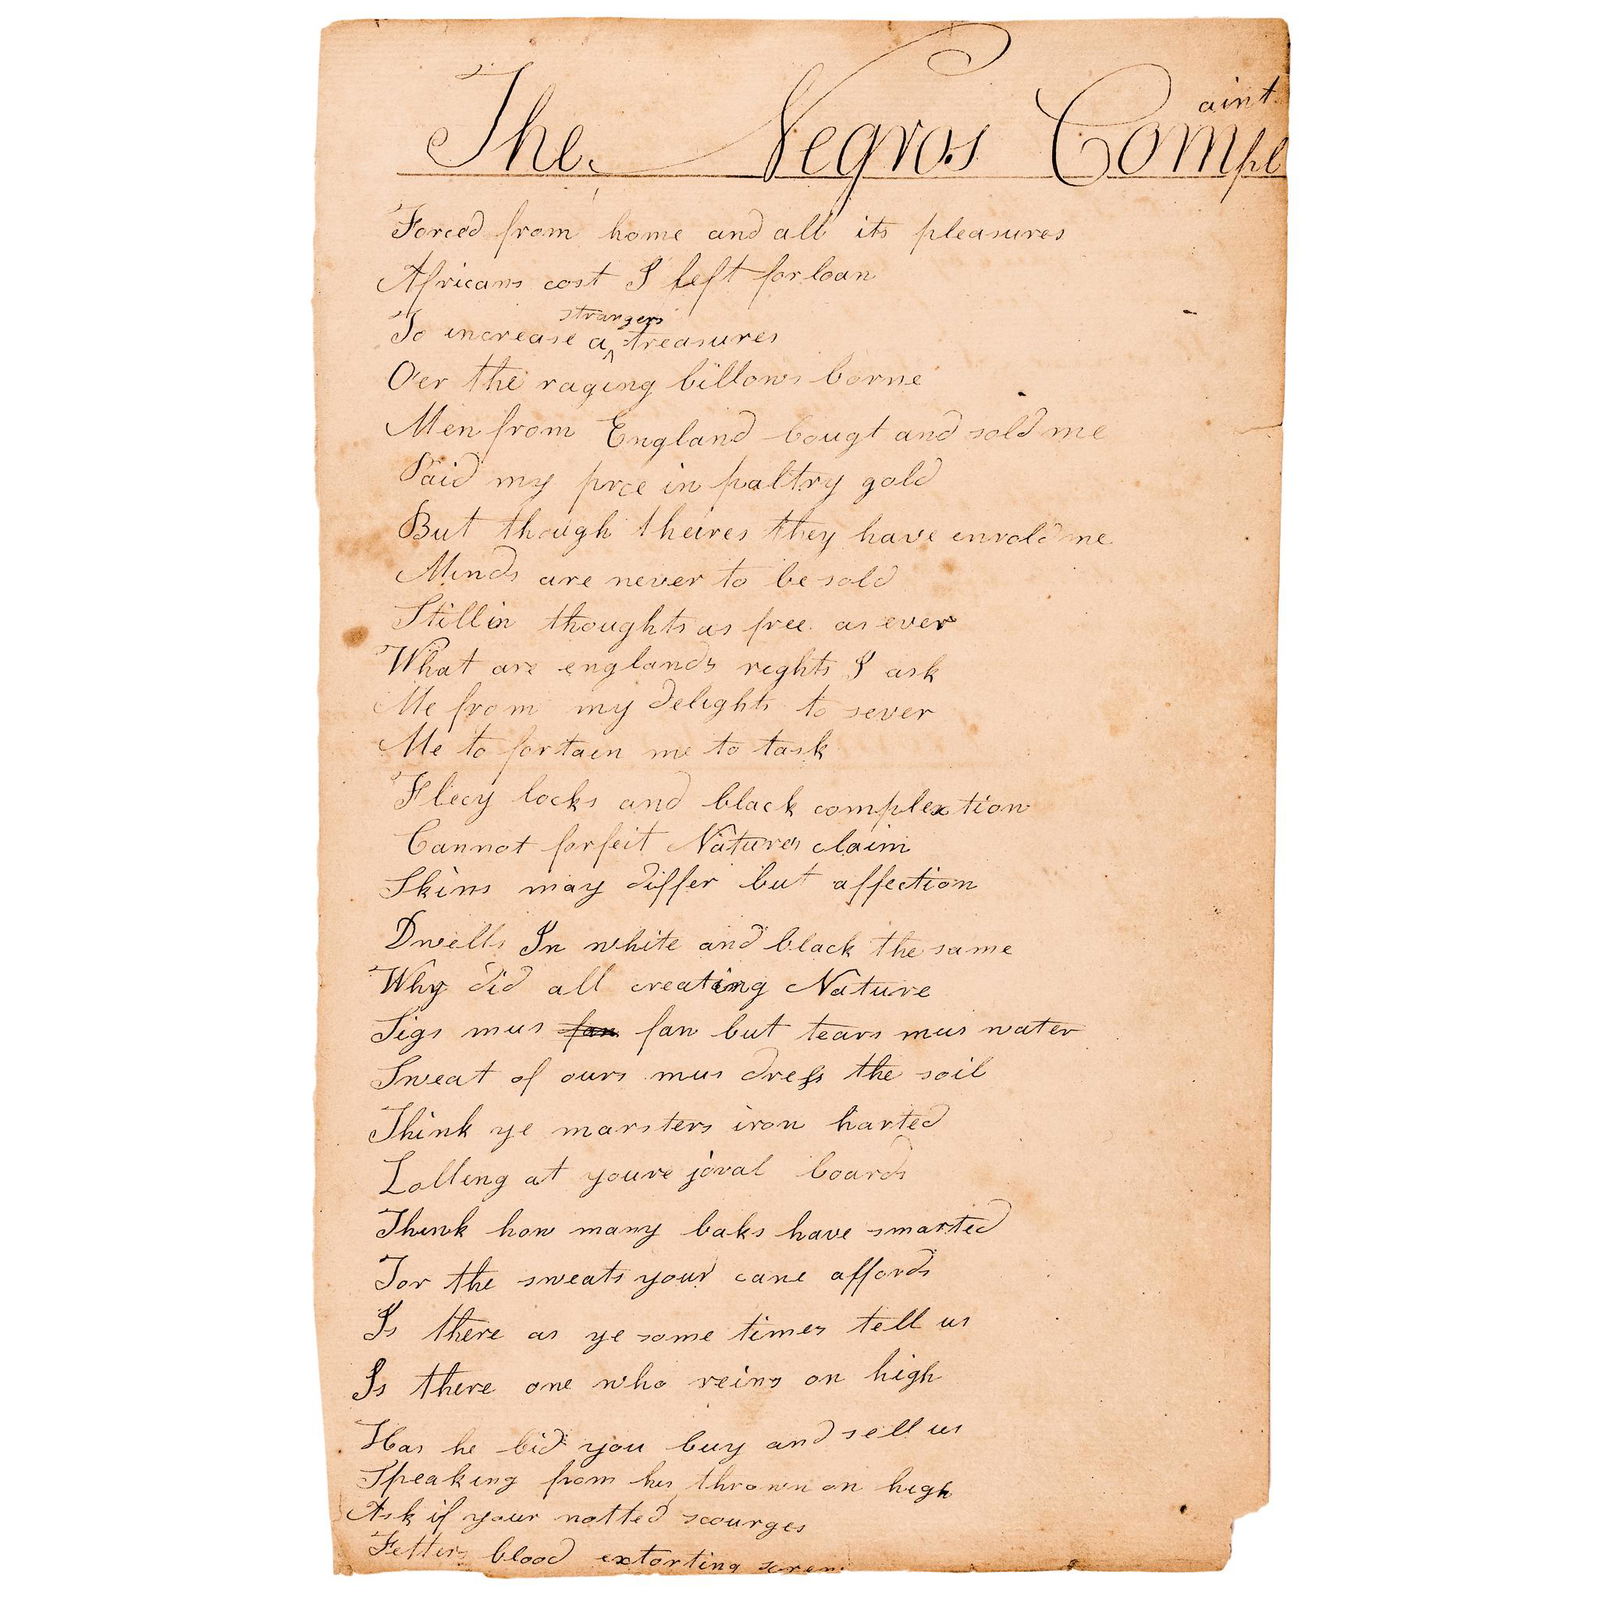 The Negros Complaint
Forced from home and all its pleasures
Africans cost I left forloan
To increase a strangers treasures
O'er the raging billows borne
Men from England bougt and sold me
Paid my prce in paltry gold
But though theires they have enrold me
Minds are never to be sold
Still in thoughts as free as ever
What are englands reghts I ask
Me from my delights to sever
Me to fortain me to task
Flecy locks and black complextion
Cannot forfeit Natures claim
Skins may differ but affection
Dwells In white and black the same
Why did all creating Nature
Sigs mus fan fan but tears mus water
Sweat of ours mus dress the soil
Think ye marsters iron harted
Lolleng at youre joval boards
Think how many baks have smarted
For the sweats your cane affords
Is there as ye some times tell us
Is there one who reins on high
Has he bid you buy and sell us
Speaking from his thrown on high
Ask if your notted scourges
Fetters blood extorting